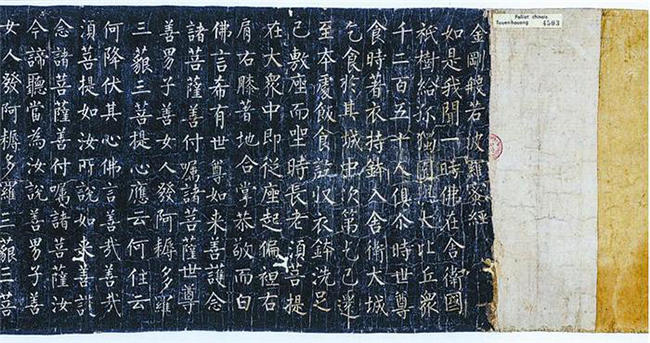 Pelliot chinois
Touen-houang 4503
金剛般若波羅蜜經
如是我聞一時佛在舍衛國
祇樹給孤獨園與大比丘衆
千二百五十人俱尒時世尊
食時著衣持鉢入舍衛大城
乞食於其城中次第乞已還
至本處飯食訖收衣鉢洗足
已敷座而坐時長老須菩提
在大衆中即從座起偏袒右
肩右膝著地合掌恭敬而白
佛言希有世尊如来善護念
諸菩薩善付囑諸菩薩世尊
善男子善女人發阿耨多羅
三藐三菩提心應云何住云
何降伏其心佛言善哉善哉
須菩提如汝所說如来善護
念諸菩薩善付囑諸菩薩汝
今諦聽當為汝說善男子善
女人發阿耨多羅三藐三菩